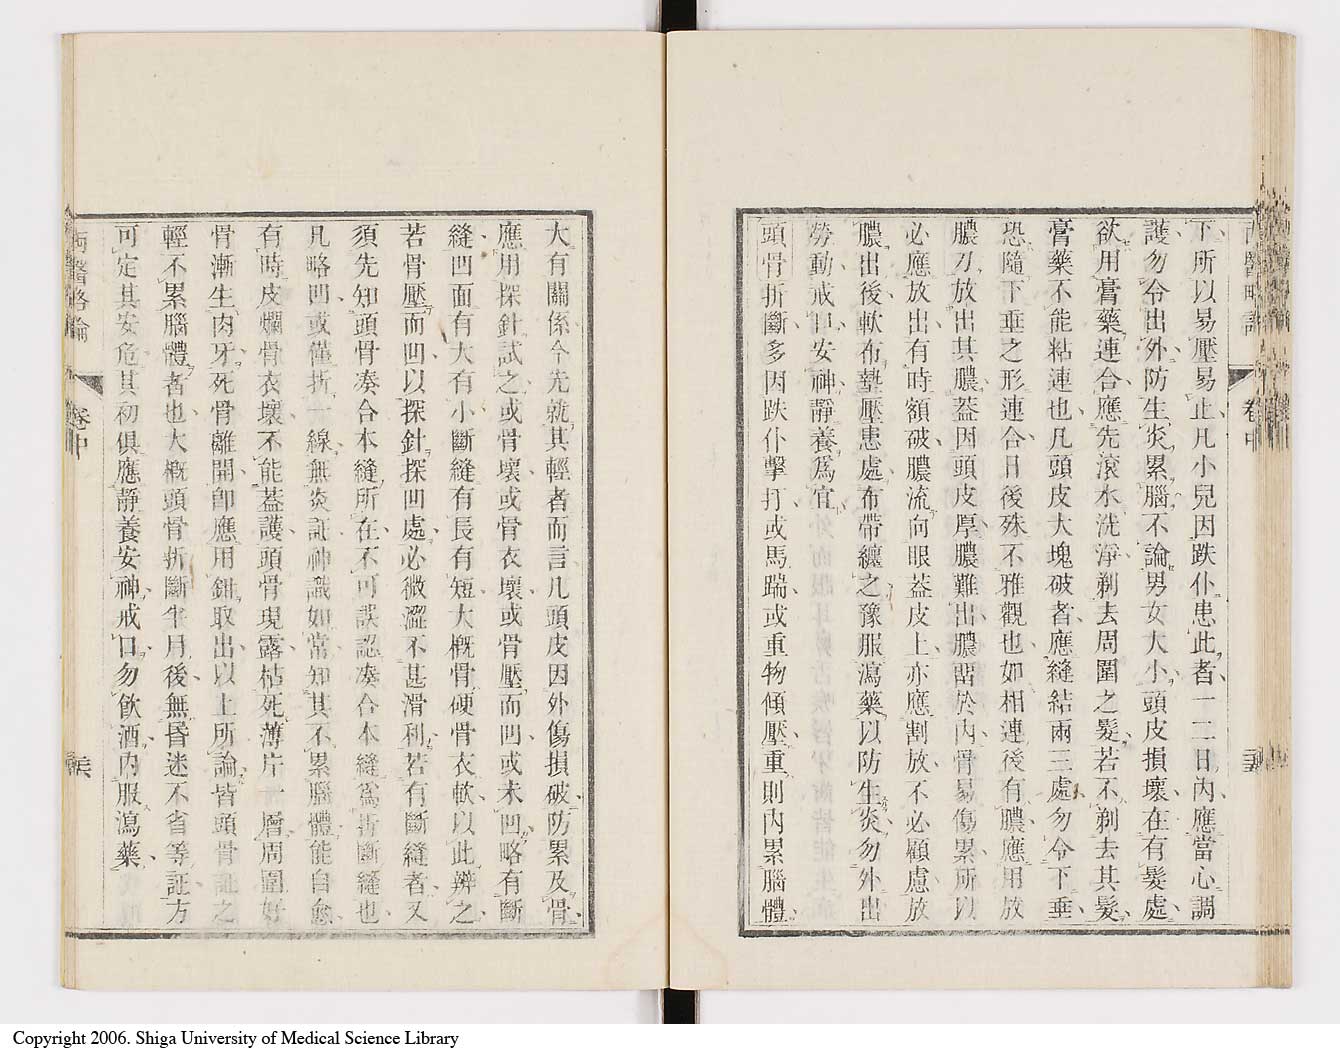 下所以易壓易止凡小兒因跌仆患此者一二日內應當心調
護勿令出外防生炎累腦不論男女大小頭皮損壞在有髮處
欲用膏藥連合應先滾水洗淨剃去周圍之髮若不剃去其髮
膏藥不能粘連也凡頭皮大塊破者應縫結兩三處勿令下垂
恐隨下垂之形連合日後殊不雅觀也如相連後有膿應用放
膿刀放出其膿蓋因頭皮厚膿難出膿踞於內骨易傷累所以
必應放出有時額破膿流向眼蓋皮上亦應割放不必顧慮放
膿出後軟布墊壓患處布帶纏之豫服瀉藥以防生炎勿外出
勞動戒口安神靜養爲宜
頭骨折斷多因跌仆擊打或馬踹或重物傾壓重則內累腦體
卷中
大有關係今先就其輕者而言凡頭皮因外傷損破防累及骨
應用探針試之或骨壞或骨衣壞或骨壓而凹或未凹略有斷
縫凹面有大有小斷縫有長有短大概骨硬骨衣軟以此辨之
若骨壓而凹以探針探凹處必微澀不甚滑利若有斷縫者又
須先知頭骨湊合本縫所在不可誤認湊合本縫爲折斷縫也
凡略凹或僅折一線無炎証神識如常知其不累腦體能自愈
有時皮爛骨衣壞不能蓋護頭骨現露枯死薄片一層周圍好
骨漸生肉牙死骨離開卽應用鉗取出以上所論皆頭骨証之
輕不累腦體者也大概頭骨折斷半月後無昏迷不省等証方
可定其安危其初俱應靜養安神戒口勿飲酒內服瀉藥
西醫略論
卷中
Copyright 2006. Shiga University of Medical Science Library